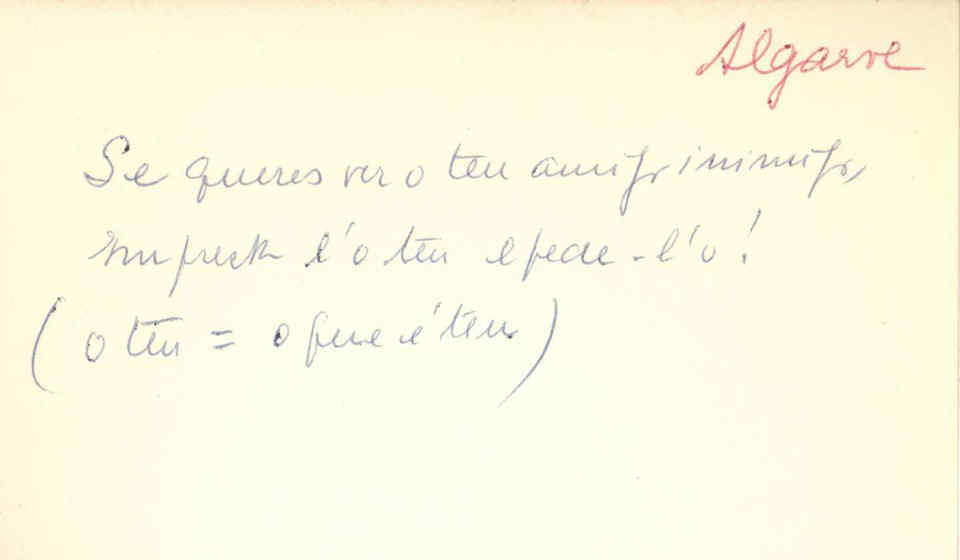 Algarve
Se queres ver o teu amigo inimigo,
empresta l'o teu e pede-l'o!
(o teu = o que é teu)